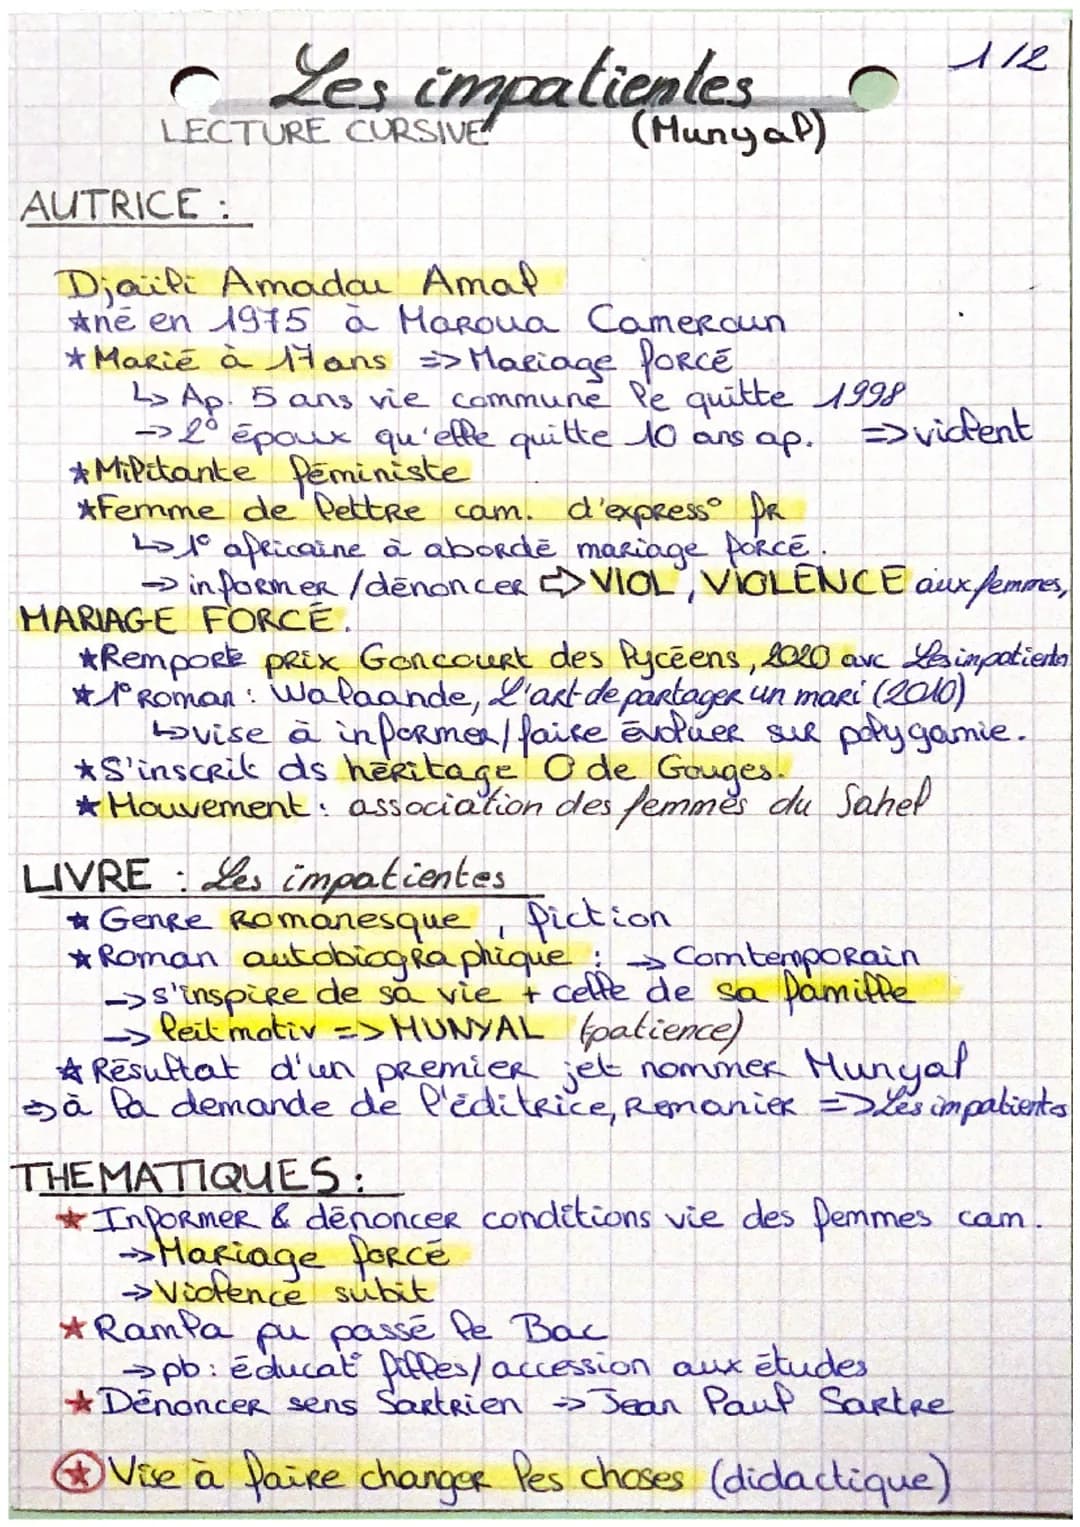 1/2
Les impatientes
LECTURE CURSIVE (Munyal)
AUTRICE :
Djaïli Amadou Amal
*né en 1975 à Maroua Cameroun
*Marié à 17 ans => Mariage forcé
↳ Ap. 5 ans vie commune le quitte 1998
→ 2° époux qu'elle quitte 10 ans ap. => violent
*Militante féministe
*Femme de lettre cam. d'express° fr
↳ 1° africaine à abordé mariage forcé.
→ informer / dénoncer ⇨ VIOL, VIOLENCE aux femmes,
MARIAGE FORCÉ.
*Remporte prix Goncourt des lycéens, 2020 avc Les impatientes
*1° Roman : Walaande, L'art de partager un mari (2010)
↳ vise à informer / faire évoluer sur polygamie.
*S'inscrit ds héritage O de Gouges.
*Mouvement : association des femmes du Sahel
LIVRE : Les impatientes
*Genre Romanesque, fiction
*Roman autobiographique : → Comtemporain
→ s'inspire de sa vie + celle de sa famille
→ leit motiv => MUNYAL (patience)
*Résultat d'un premier jet nommer Munyal
⇒ à la demande de l'éditrice, Remanier => Les impatientes
THEMATIQUES :
*Informer & dénoncer conditions vie des femmes cam.
→ Mariage forcé
→ Violence subit
*Ramla pu passé le Bac
→ pb : éducat° filles / accession aux études
*Dénoncer sens Sartrien → Jean Paul Sartre
*Vise à faire changer les choses (didactique)